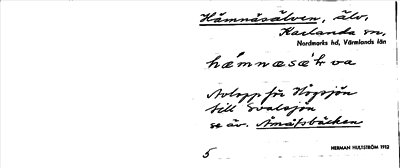 Hämnäsälven, älv,
Karlanda sn,
Nordmarks hd, Värmlands län
hämnesä´lva
Avlopp för Högsjön
till Svalsjön
se äv. Åmåsbäcken
HERMAN HULTSTRÖM 1912
5